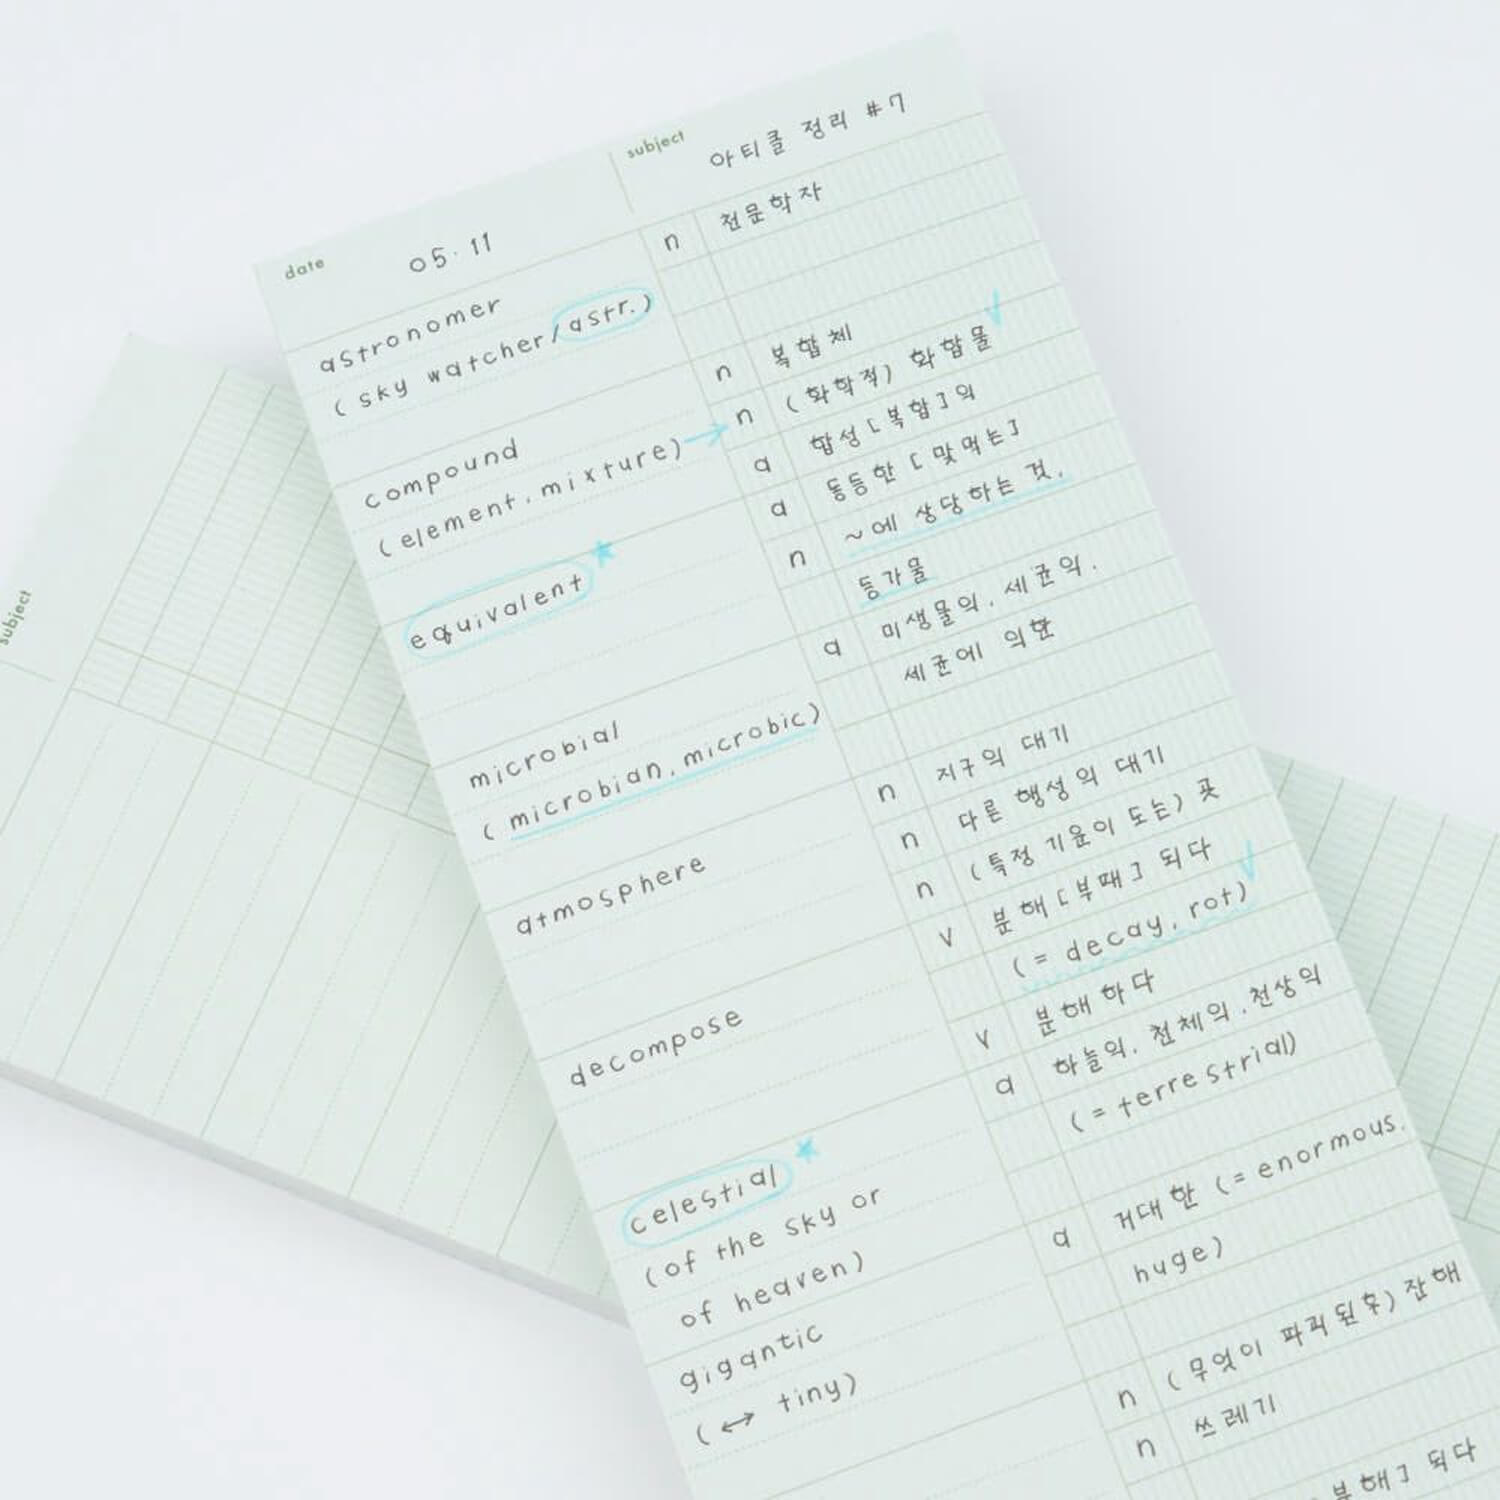 date 05.11
subject 아티클 정리 #7
astronomer n 천문학자
(sky watcher/astr.)
compound n 복합체
(element.mixture) → n (화학적) 화합물
a 합성[복합]의
equivalent a 동등한 [맞먹는]
n ~에 상당하는 것.
등가물
microbial a 미생물의. 세균의.
(microbian, microbic) 세균에 의한
atmosphere n 지구의 대기
n 다른 행성의 대기
n (특정 기운이 도는) 곳
decompose v 분해[부패] 되다
(= decay, rot)
v 분해하다
celestial a 하늘의. 천체의.천상의
(of the sky or (= terrestrial)
of heaven)
gigantic a 거대한 (= enormous.
(↔ tiny) huge)
n (무엇이 파괴된후) 잔해
n 쓰레기
분해] 되다
subject